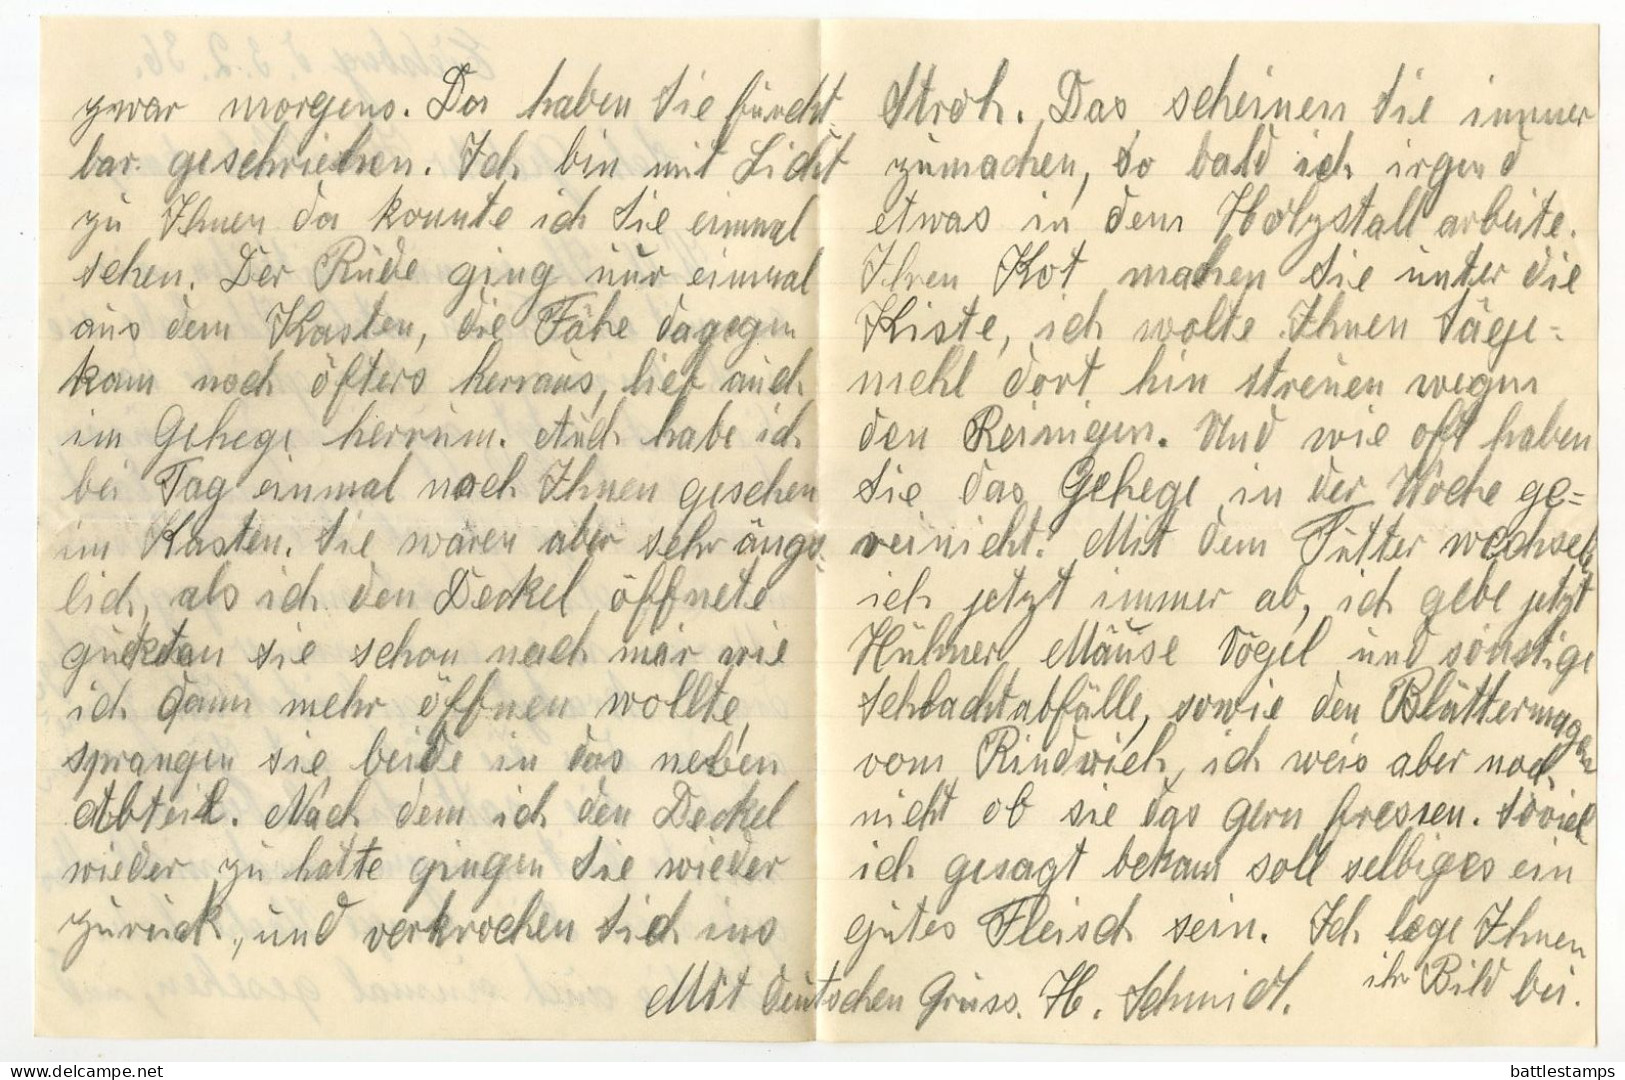 zwar morgens. Da haben Sie furcht-
bar geschriehen. Ich bin mit Licht
zu Ihnen da konnte ich Sie einmal
sehen. Der Rüde ging nur einmal
aus dem Kasten, die Fähe dagegen
kam noch öfters herraus, lief auch
im Gehege herrum. Auch habe ich
bei Tag einmal nach Ihnen gesehen
im Kasten. Sie waren aber sehr ängs-
lich, als ich den Deckel öffnete
guckten sie schon nach mir wie
ich dann mehr öffnen wollte,
sprangen sie beide in das neben
Abteil. Nach dem ich den Deckel
wieder zu hatte gingen Sie wieder
zurück, und verkrochen Sich ins
Stroh. Das scheinen Sie immer
zumachen, so bald ich irgend
etwas in dem Holzstall arbeite.
Ihren Kot machen Sie unter die
Kiste, ich wolte Ihnen Säge=
mehl dort hin streuen wegen
den Reinigen. Und wie oft haben
Sie das Gehege in der Woche ge=
reinicht? Mit dem Futter wechsele
ich jetzt immer ab, ich gebe jetzt
Hühner Mäuse Vögel und sonstige
Schlachtabfälle, sowie den Blättermagen
vom Rindvieh, ich weis aber noch
nicht ob sie das gern fressen. Soviel
ich gesagt bekam soll selbiges ein
gutes Fleisch sein. Ich lege Ihnen
ihr Bild bei.
Mit deutschen Gruss. H. Schmidt.
battlestamps